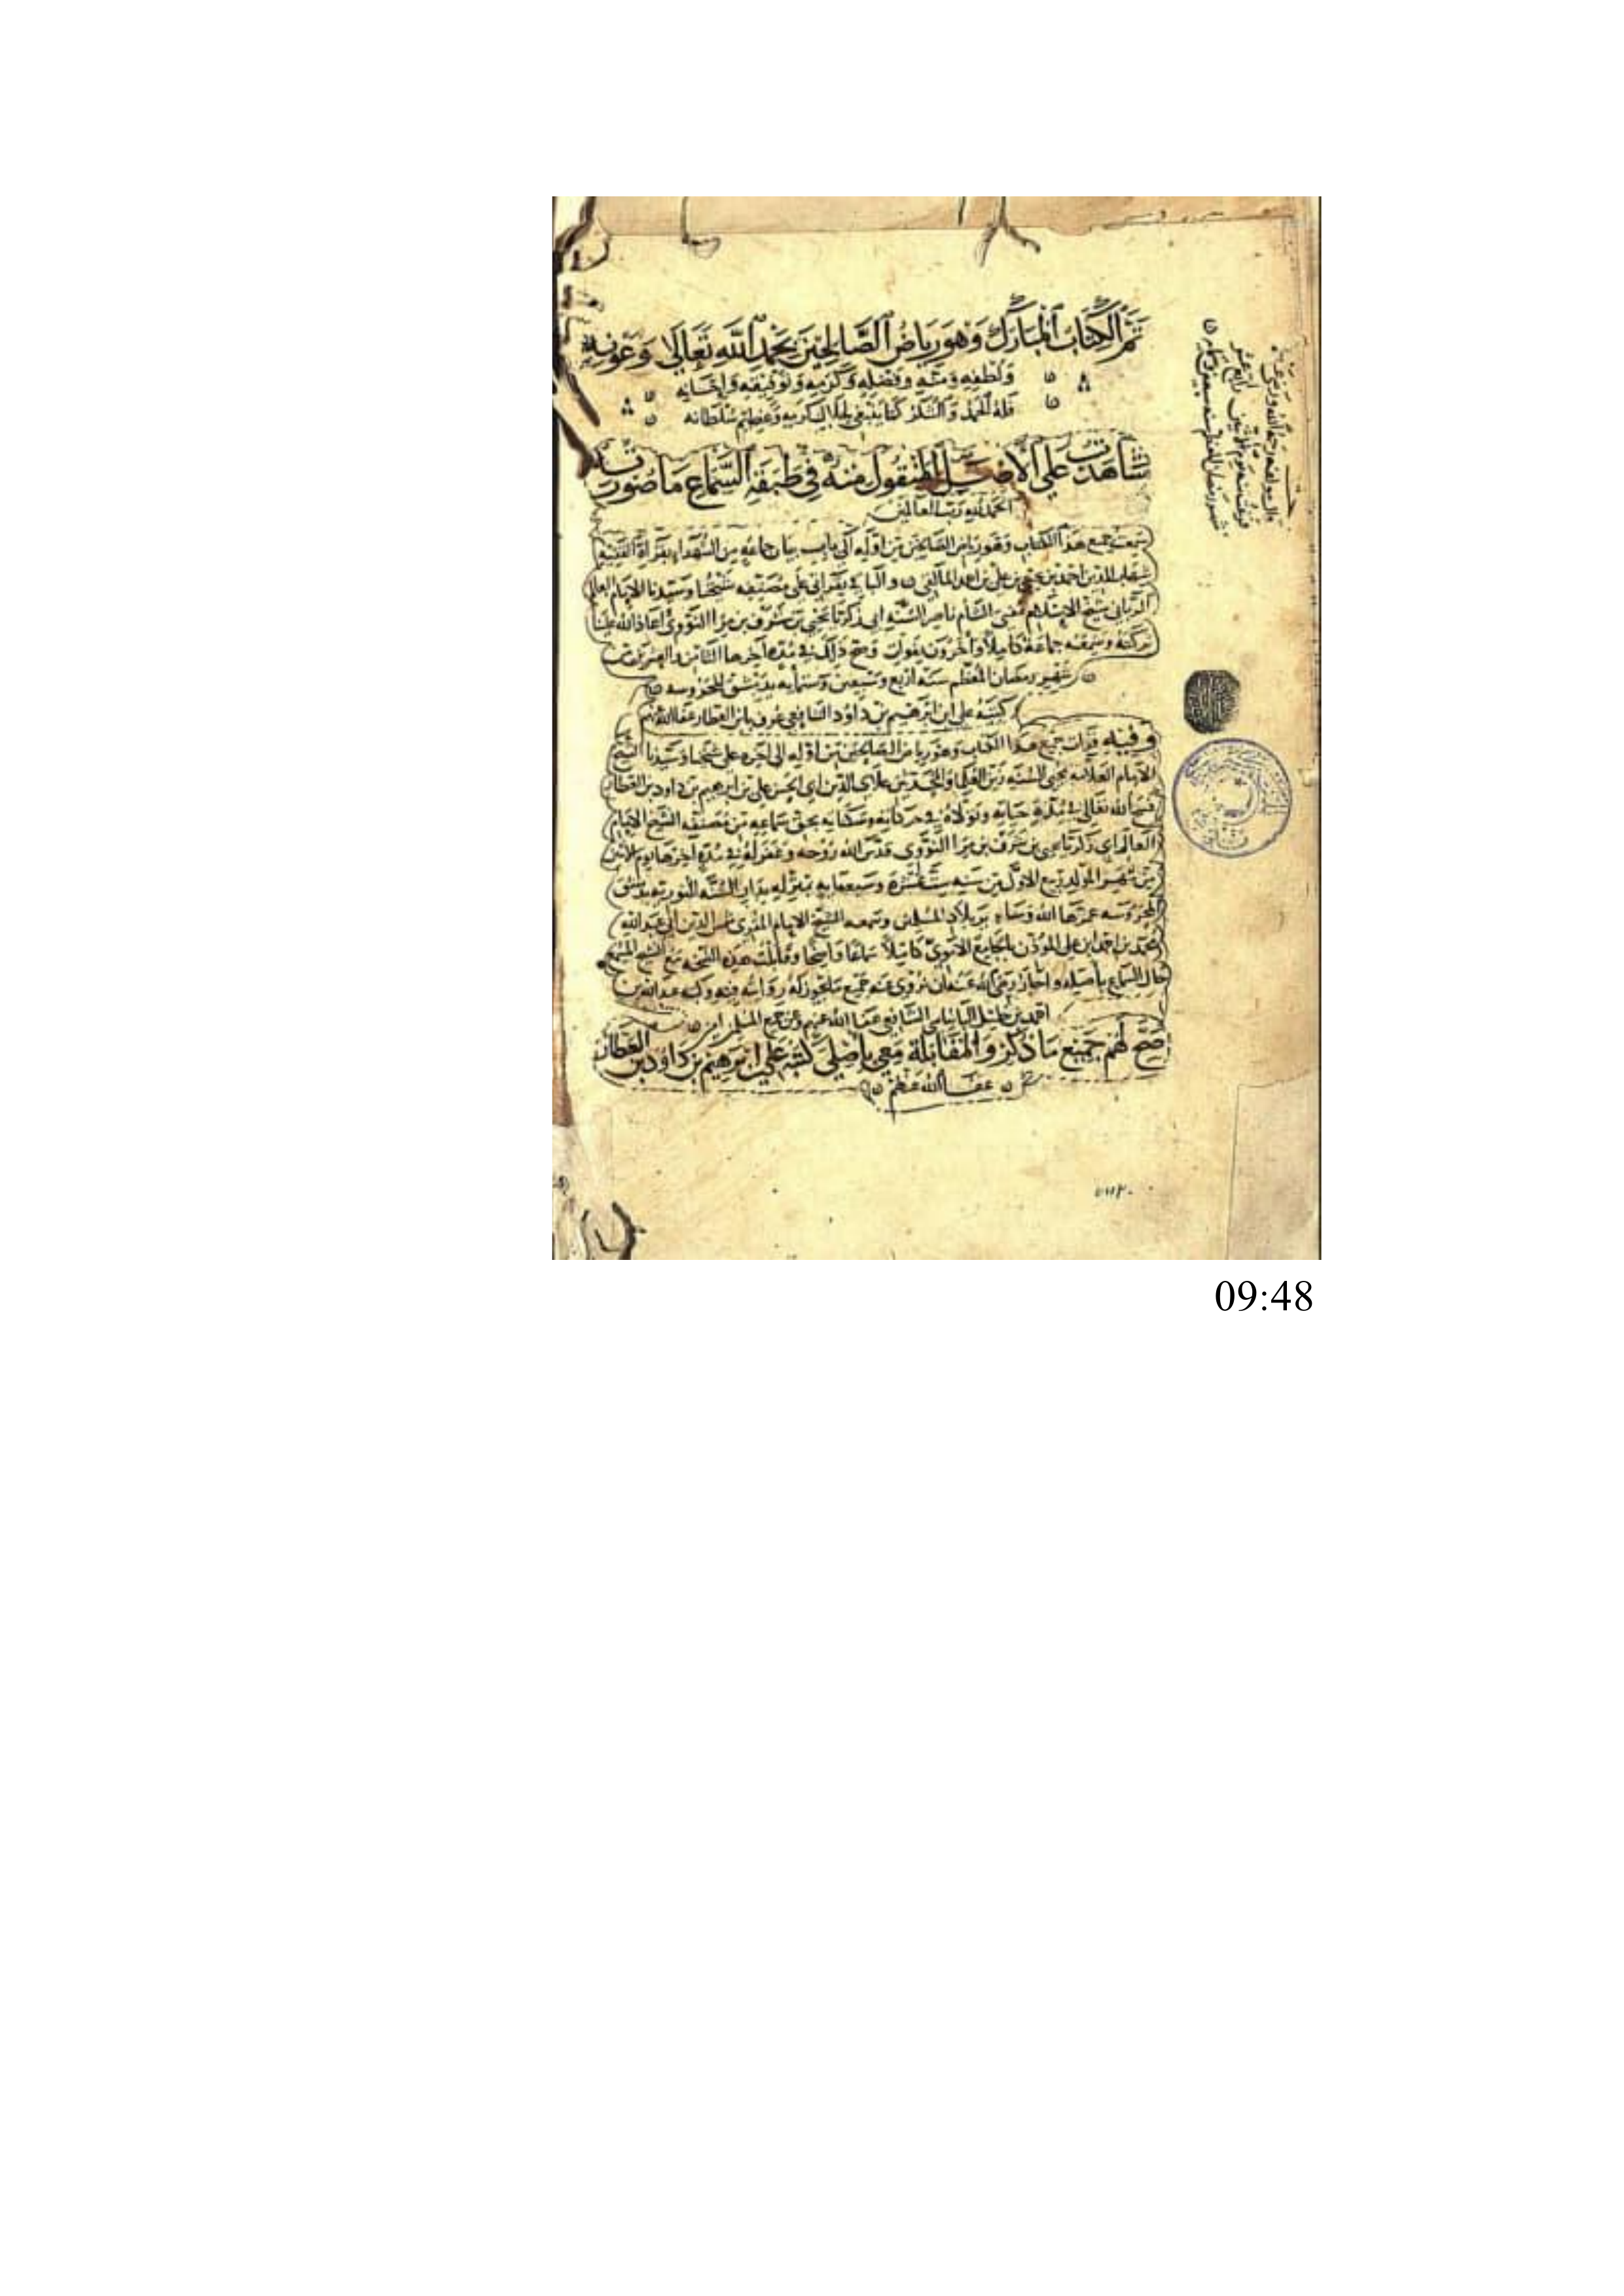 تم الكتاب المبارك وهو رياض الصالحين بحمد الله تعالى وعونه
ولطفه ومنه وفضله وكرمه وتوفيقه وإحسانه
فله الحمد والشكر كما ينبغي لجلال كرمه وعظيم سلطانه
شاهدت على الأصل المنقول منه في طبقة السماع ما صورته
الحمد لله رب العالمين
سمعت جميع هذا الكتاب وهو رياض الصالحين من اوله الى باب بيان جماعة من الشهداء بقراة الفقيه
شهاب الدين احمد بن يحيى بن علي بن احمد المالقي والباقي بقراتي على مصنفه شيخنا وسيدنا الامام العالم
الرباني شيخ الاسلام مفتي الشام ناصر السنة ابي زكريا يحيى بن شرف بن مرا النووي اعاد الله علينا
بركته وسمعه جماعة كاملا وآخرون بفوات وصح ذلك في مدة آخرها الثامن والعشرين من
شهر رمضان المعظم سنة اربع وسبعين وستمايه بدمشق المحروسه
كتبه علي ابن ابرهيم بن داود الشافعي عرف بابن العطار عفا الله عنهم
وفيه قرات جميع هذا الكتاب وهو رياض الصالحين من اوله الى آخره على شيخنا وسيدنا الشيخ
الامام العلامه محيي السنه زين العلما والمحدثين علاي الدين ابي الحسن علي بن ابرهيم بن داود بن العطار
فسح الله تعالى في مدة حياته وتولاه في حركاته وسكناته بحق سماعه من مصنفه الشيخ الامام
العالم ابي زكريا يحيى بن شرف بن مرا النووي قدس الله روحه وغفر له في مدة آخرها يوم الاثنين
من شهر المولد ربيع الاول من سنه ست عشرة وسبعمايه بمنزله بدار السنه النوريه بدمشق
المحروسه عمرها الله وساير بلاد المسلمين وسمعه الشيخ الامام المقري شمس الدين ابي عبد الله
محمد بن احمد بن علي المؤذن بالجامع الاموي كاملا سماعا واضحا وقابلت هذه النسخه مع الشيخ المسمع
حال السماع باصله واجاز رضي الله عنه ان نروي عنه جميع ما يجوز له روايته وكتبه عبد الله بن
احمد بن خليل الشافعي عفا الله عنهم وعن جميع المسلمين امين
صح لهم جميع ما ذكر والمقابلة معي باصلي كتبه علي بن ابرهيم بن داود بن العطار
عفا الله عنهم
09:48